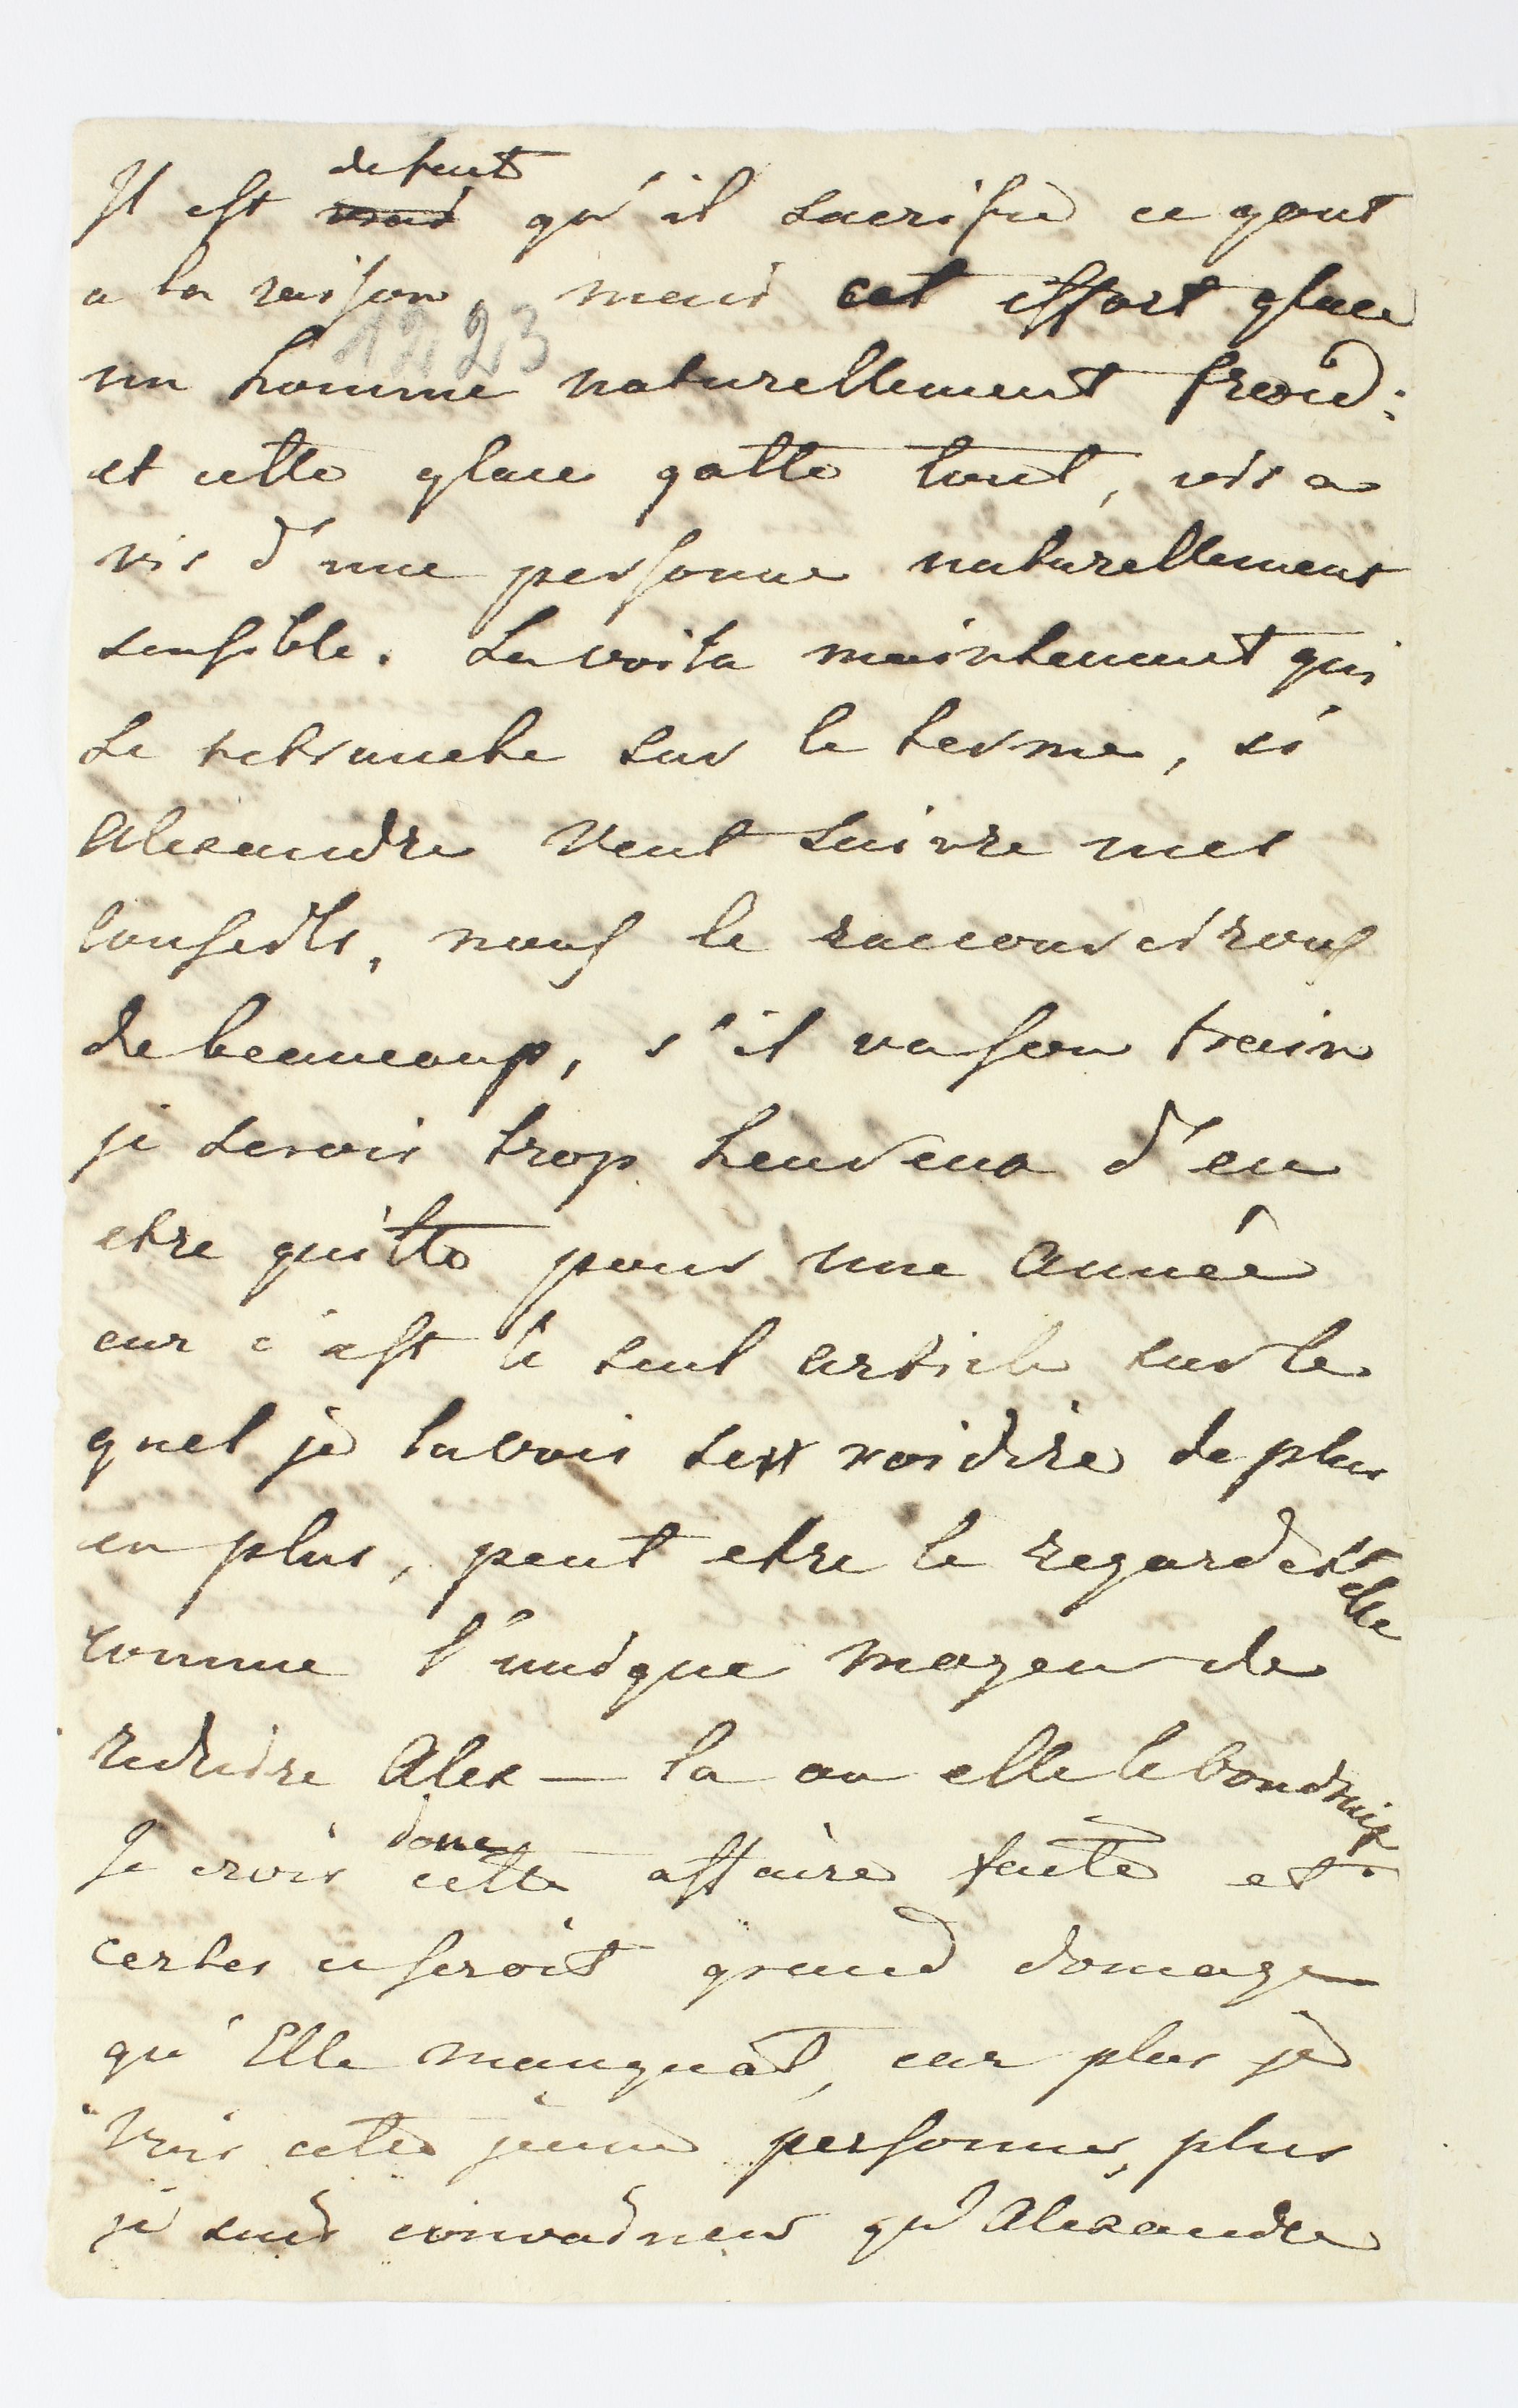 de tout
Il est vrai qu'il sacrifie ce gout
a la raison, mais cet effort glace
1223
un homme naturellement froid:
et cette glace gatte tout, vis a
vis d'une personne naturellement
sensible. La voila maintenant qui
se retranche sur le terme, si
Alexandre veut suivre mes
conseils, nous le raccourcirons
de beaucoup, s'il va son train
je serois trop heureux d'en
etre quitte pour une année
car c'est le seul article sur le
quel je la vois se roidire de plus
en plus, peut etre le regarde t'elle
comme l'unique moyen de
reduire Alex — la ou elle le voudroit
donc
Je crois cette affaire faite et
certes ce seroit grand domage
qu'Elle manquat, car plus je
vois cette jeune personne, plus
je suis convaincu qu'Alexandre